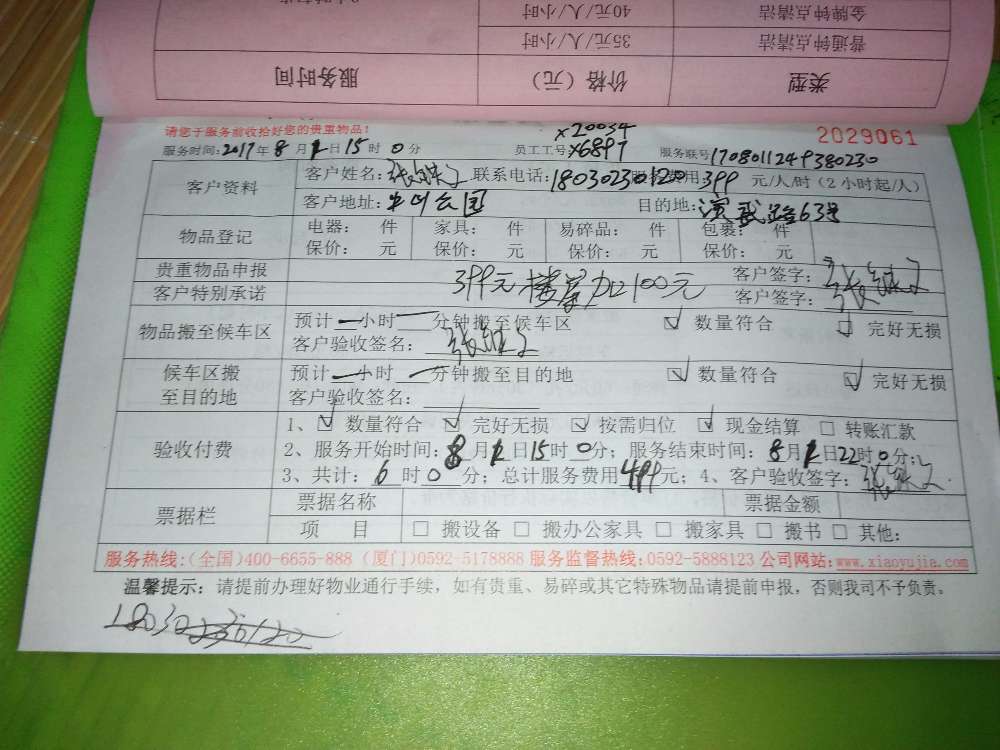 金牌钟点清洁 40元/人/小时
普通钟点清洁 35元/人/小时
类型 价格（元） 服务时间
请您于服务前收拾好您的贵重物品！ X20034 2029061
服务时间:2017年8月 日15时0分 员工工号X6897 服务联号1708011249380230
客户资料 客户姓名: 联系电话:18030230120 费用399元/人/时(2小时起/人)
客户地址: 公园 目的地:演武路63号
物品登记 电器： 件 家具： 件 易碎品： 件 包裹： 件
保价： 元 保价： 元 保价： 元 保价： 元
贵重物品申报 399元楼层加100元 客户签字:
客户特别承诺 客户签字:
物品搬至候车区 预计 小时 分钟搬至候车区 ☑ 数量符合 ☑ 完好无损
客户验收签名:
候车区搬至目的地 预计 小时 分钟搬至目的地 ☑ 数量符合 ☑ 完好无损
客户验收签名:
验收付费 1、☑ 数量符合 ☑ 完好无损 ☑ 按需归位 ☑ 现金结算 □ 转账汇款
2、服务开始时间:8月 日15时0分；服务结束时间:8月 日22时0分；
3、共计:6时0分；总计服务费用499元；4、客户验收签字:
票据栏 票据名称 票据金额
项 目 □ 搬设备 □ 搬办公家具 □ 搬家具 □ 搬书 □ 其他:
服务热线:(全国)400-6655-888 (厦门)0592-5178888 服务监督热线:0592-5888123 公司网站:www.xiaoyujia.com
温馨提示：请提前办理好物业通行手续，如有贵重、易碎或其它特殊物品请提前申报，否则我司不予负责。
18030230120